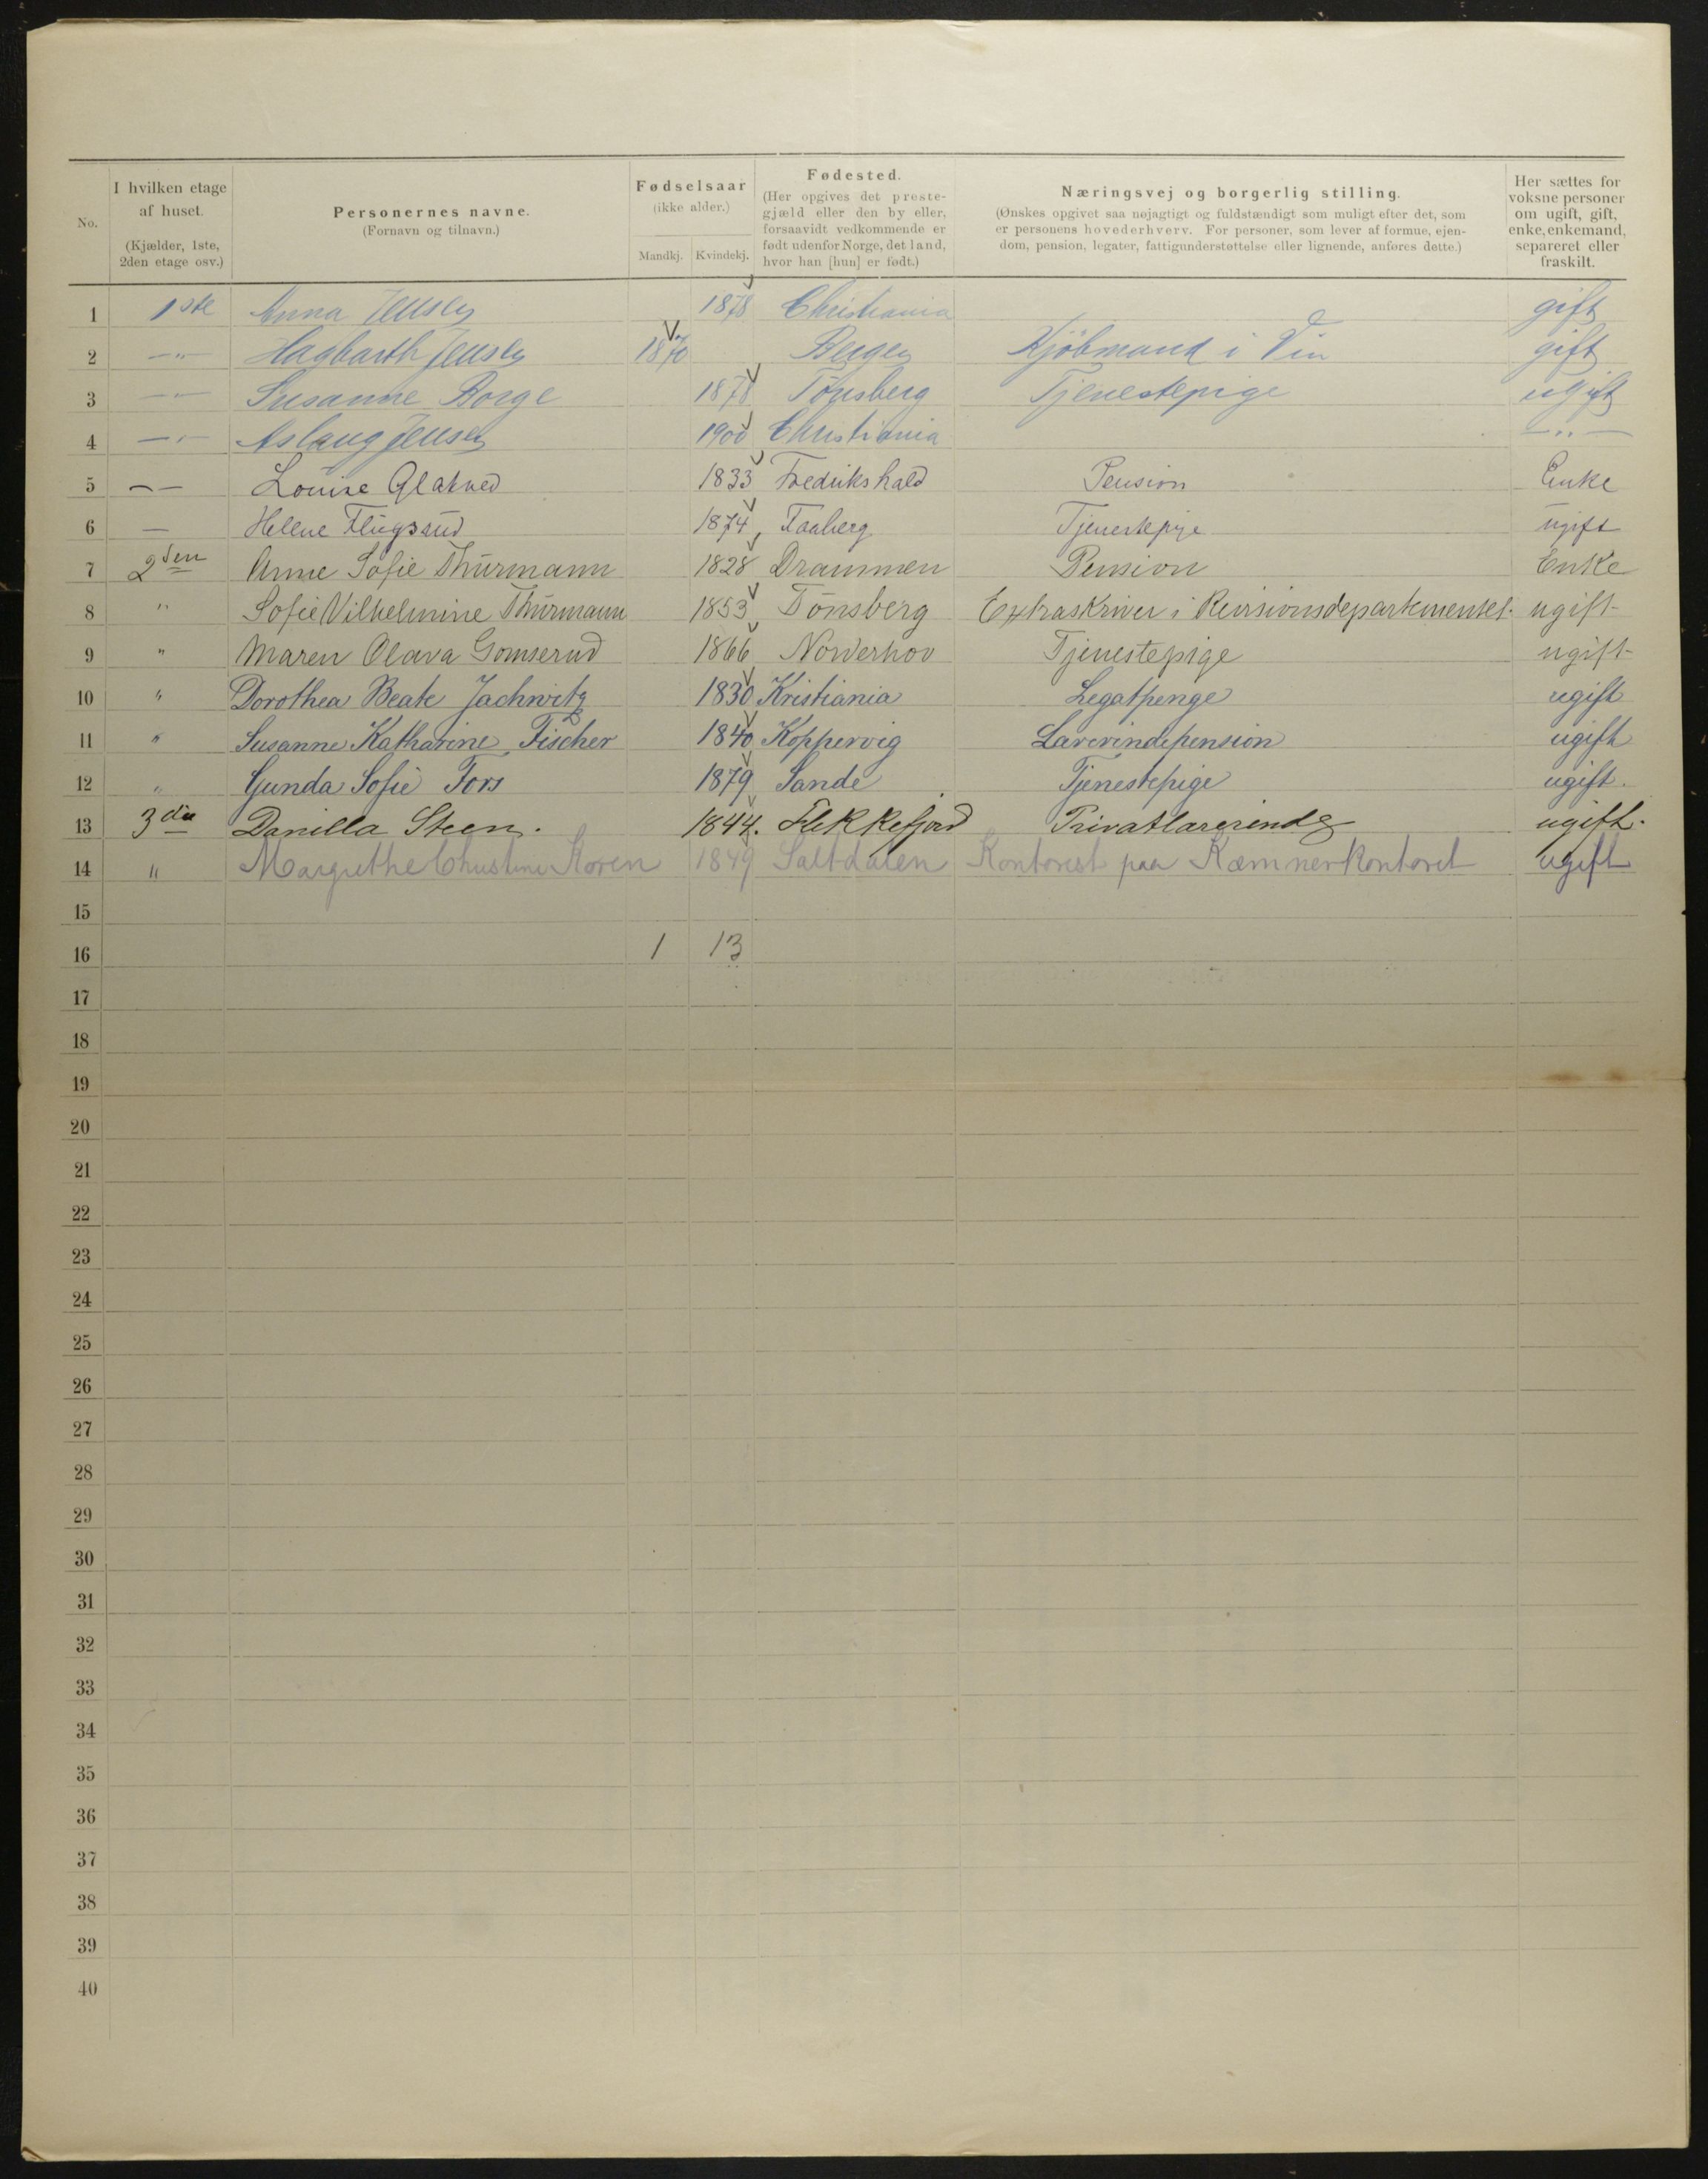 No.
I hvilken etage
af huset.
(Kjælder, 1ste,
2den etage osv.)
Personernes navne.
(Fornavn og tilnavn.)
Fødselsaar
(ikke alder.)
Mandkj. Kvindekj.
Fødested.
(Her opgives det preste-
gjæld eller den by eller,
forsaavidt vedkommende er
født udenfor Norge, det land,
hvor han [hun] er født.)
Næringsvej og borgerlig stilling.
(Ønskes opgivet saa nøjagtigt og fuldstændigt som muligt efter det, som
er personens hovederhverv. For personer, som lever af formue, ejen-
dom, pension, legater, fattigunderstøttelse eller lignende, anføres dette.)
Her sættes for
voksne personer
om ugift, gift,
enke, enkemand,
separeret eller
fraskilt.
1 1ste Anna Jensen 1878 Christiania gift
2 —"— Hagbarth Jensen 1870 Bergen Kjöbmand i Vin gift
3 —"— Susanne Borge 1878 Tönsberg Tjenestepige ugift
4 —"— Aslaug Jensen 1900 Christiania —"—
5 — — Louise Glatved 1833 Fredrikshald Pension Enke
6 — Hellene Flugsrud 1874 Faaberg Tjenestepige ugift
7 2den Anne Sofie Thurmann 1828 Drammen Pension Enke
8 " Sofie Vilhelmine Thurmann 1853 Tönsberg Extraskriver i Revisionsdepartementet. ugift
9 " Maren Olava Gomserud 1866 Norderhov Tjenestepige ugift
10 " Dorothea Beate Jachwitz 1830 Kristiania Legatpenge ugift
11 " Susanne Katharine Fischer 1840 Koppervig Lærerindepension ugift
12 " Gunda Sofie Fors 1879 Sande Tjenestepige ugift.
13 3die Danilla Steen. 1844. Flekkefjord Privatlærerinde ugift.
14 " Margrethe Christine Koren 1849 Saltdalen Kontorist paa Kæmnerkontoret ugift
15
16 1 13
17
18
19
20
21
22
23
24
25
26
27
28
29
30
31
32
33
34
35
36
37
38
39
40